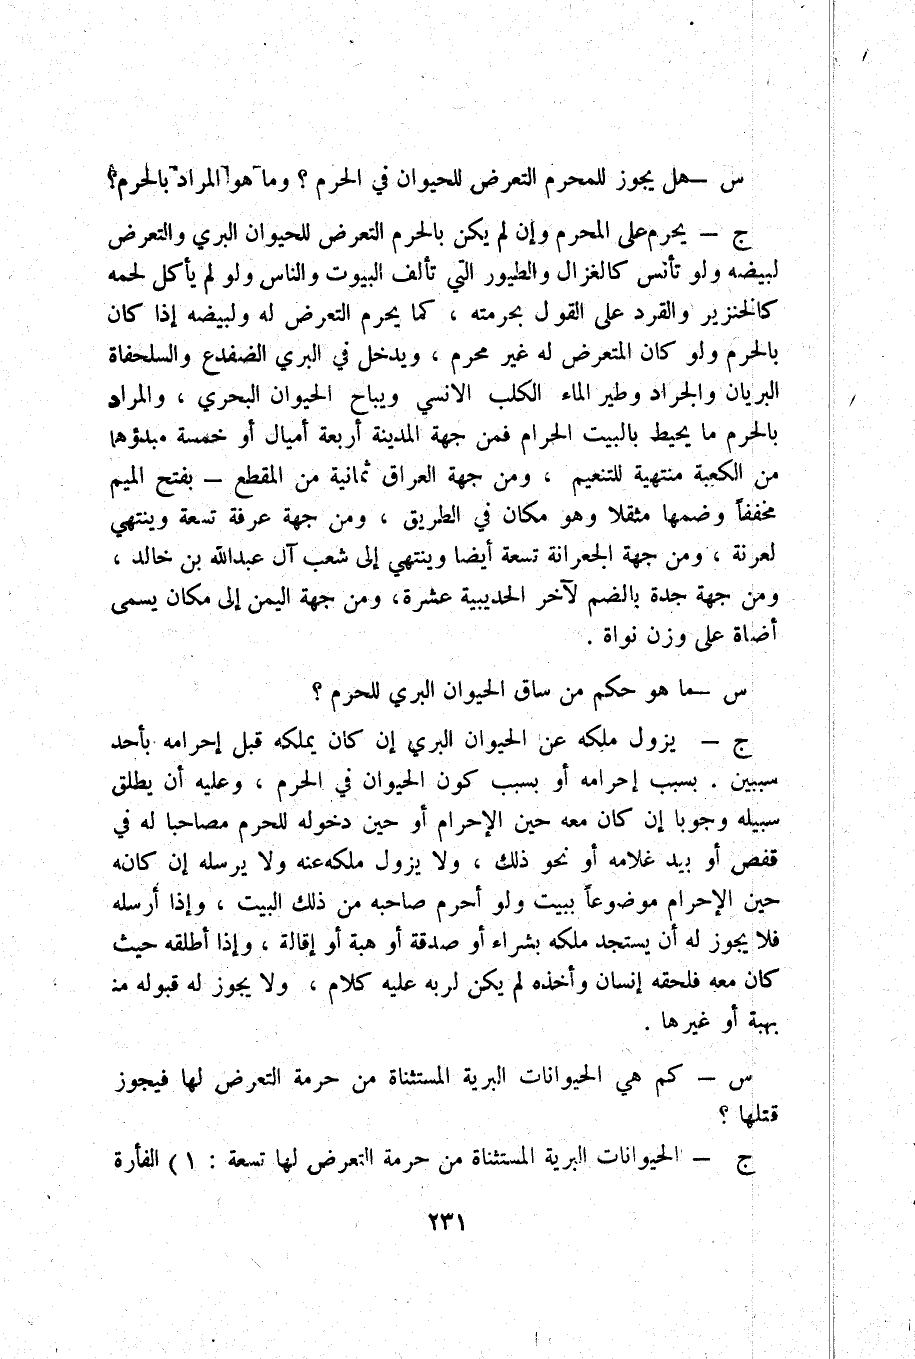 س — هل يجوز للمحرم التعرض للحيوان في الحرم ؟ وما هو المراد بالحرم ؟
ج — يحرم على المحرم وإن لم يكن بالحرم التعرض للحيوان البري والتعرض
لبيضه ولو تأنس كالغزال والطيور التي تألف البيوت والناس ولو لم يأكل لحمه
كالخنزير والقرد على القول بحرمته ، كما يحرم التعرض له ولبيضه إذا كان
بالحرم ولو كان المتعرض له غير محرم ، ويدخل في البري الضفدع والسلحفاة
البريان والجراد وطير الماء الكلب الانسي ويباح الحيوان البحري ، والمراد
بالحرم ما يحيط بالبيت الحرام فمن جهة المدينة أربعة أميال أو خمسة مبدؤها
من الكعبة منتهية للتنعيم ، ومن جهة العراق ثمانية من المقطع — بفتح الميم
مخففاً وضمها مثقلا وهو مكان في الطريق ، ومن جهة عرفة تسعة وينتهي
لعرنة ، ومن جهة الجعرانة تسعة أيضا وينتهي إلى شعب آل عبدالله بن خالد ،
ومن جهة جدة بالضم لآخر الحديبية عشرة ، ومن جهة اليمن إلى مكان يسمى
أضاة على وزن نواة .
س — ما هو حكم من ساق الحيوان البري للحرم ؟
ج — يزول ملكه عن الحيوان البري إن كان يملكه قبل إحرامه بأحد
سببين . بسبب إحرامه أو بسبب كون الحيوان في الحرم ، وعليه أن يطلق
سبيله وجوبا إن كان معه حين الإحرام أو حين دخوله للحرم مصاحبا له في
قفص أو بيد غلامه أو نحو ذلك ، ولا يزول ملكه عنه ولا يرسله إن كانه
حين الإحرام موضوعاً ببيت ولو أحرم صاحبه من ذلك البيت ، وإذا أرسله
فلا يجوز له أن يستجد ملكه بشراء أو صدقة أو هبة أو إقالة ، وإذا أطلقه حيث
كان معه فلحقه إنسان وأخذه لم يكن لربه عليه كلام ، ولا يجوز له قبوله منه
بهبة أو غيرها .
س — كم هي الحيوانات البرية المستثناة من حرمة التعرض لها فيجوز
قتلها ؟
ج — الحيوانات البرية المستثناة من حرمة التعرض لها تسعة : ١ ) الفأرة
٢٣١